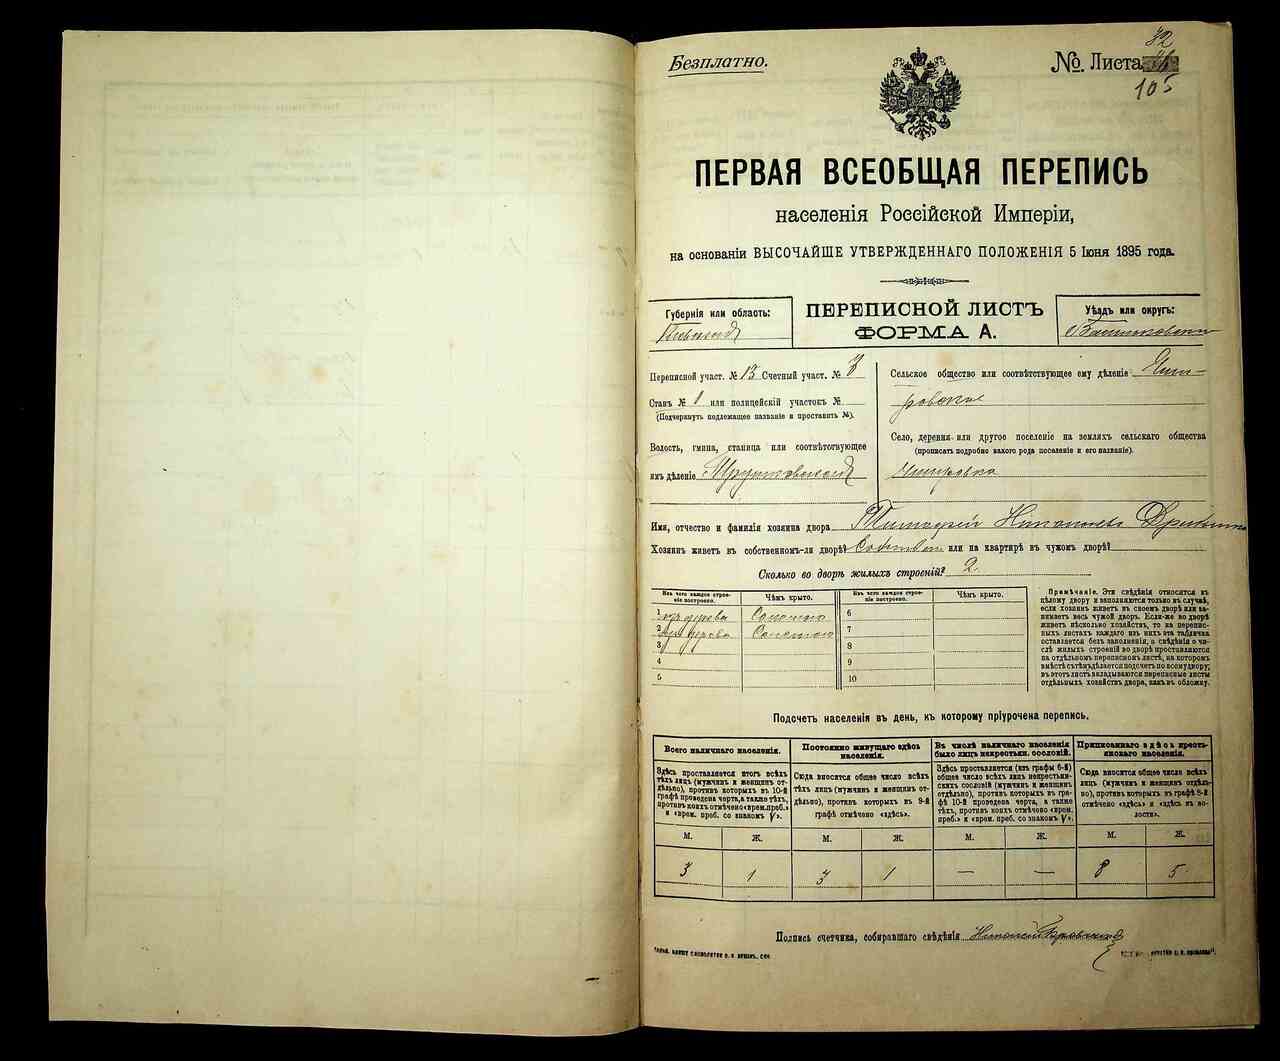 Безплатно.
№ Листа
32
105
ПЕРВАЯ ВСЕОБЩАЯ ПЕРЕПИСЬ
населенія Россійской Имперіи,
на основаніи ВЫСОЧАЙШЕ УТВЕРЖДЕННАГО ПОЛОЖЕНІЯ 5 Іюня 1895 года.
Губернія или область:
ПЕРЕПИСНОЙ ЛИСТЪ
ФОРМА А.
Уѣздъ или округъ:
Переписной участ. № 13 Счетный участ. № 3
Станъ № 1 или полицейскій участокъ №
(Подчеркнуть подлежащее названіе и проставить №).
Волость, гмина, станица или соотвѣтствующее
имъ дѣленіе
Сельское общество или соотвѣтствующее ему дѣленіе
Село, деревня или другое поселеніе на земляхъ сельскаго общества
(прописать подробно какого рода поселеніе и его названіе).
Имя, отчество и фамилія хозяина двора
Хозяинъ живетъ въ собственномъ-ли дворѣ? или на квартирѣ въ чужомъ дворѣ?
Сколько во дворѣ жилыхъ строеній? 2
Изъ чего каждое строеніе построено.
Чѣмъ крыто.
1 изъ дерева Соломою
2 изъ дерева Соломою
3
4
5
Изъ чего каждое строеніе построено.
Чѣмъ крыто.
6
7
8
9
10
Примѣчаніе. Эти свѣдѣнія относятся къ
цѣлому двору и заполняются только въ случаѣ,
если хозяинъ живетъ въ своемъ дворѣ или занимаетъ
весь чужой дворъ. Если-же во дворѣ
живетъ нѣсколько хозяйствъ, то на переписныхъ
листахъ каждаго изъ нихъ эта табличка
оставляется безъ заполненія, а свѣдѣнія о числѣ
жилыхъ строеній во дворѣ проставляются
на отдѣльномъ переписномъ листѣ, на которомъ
вмѣстѣ съ тѣмъ дѣлается подсчетъ по всему двору;
въ этотъ листъ вкладываются переписные листы
отдѣльныхъ хозяйствъ двора, какъ въ обложку.
Подсчетъ населенія въ день, къ которому пріурочена перепись.
Всего наличнаго населенія.
Здѣсь проставляется итогъ всѣхъ
тѣхъ лицъ (мужчинъ и женщинъ отдѣльно),
противъ которыхъ въ 10-й
графѣ проведена черта, а также тѣхъ,
противъ коихъ отмѣчено «врем. преб.»
и «врем. преб. со знакомъ V».
Постоянно живущаго здѣсь
населенія.
Сюда вносится общее число всѣхъ
тѣхъ лицъ (мужчинъ и женщинъ отдѣльно),
противъ которыхъ въ 9-й
графѣ отмѣчено «здѣсь».
Въ числѣ наличнаго населенія
было лицъ некрестьян. сословій.
Здѣсь проставляется (изъ графы 6-й)
общее число всѣхъ лицъ некрестьянскихъ
сословій (мужчинъ и женщинъ
отдѣльно), противъ которыхъ въ графѣ
10-й проведена черта, а также
тѣхъ, противъ коихъ отмѣчено «врем.
преб.» и «врем. преб. со знакомъ V».
Приписаннаго здѣсь крестьянскаго
населенія.
Сюда вносится общее число всѣхъ
лицъ (мужчинъ и женщинъ отдѣльно),
противъ которыхъ въ графѣ 8-й
отмѣчено «здѣсь» и «здѣсь въ волости».
М. Ж. М. Ж. М. Ж. М. Ж.
3 1 3 1 — — 8 5
Подпись счетчика, собиравшаго свѣдѣнія